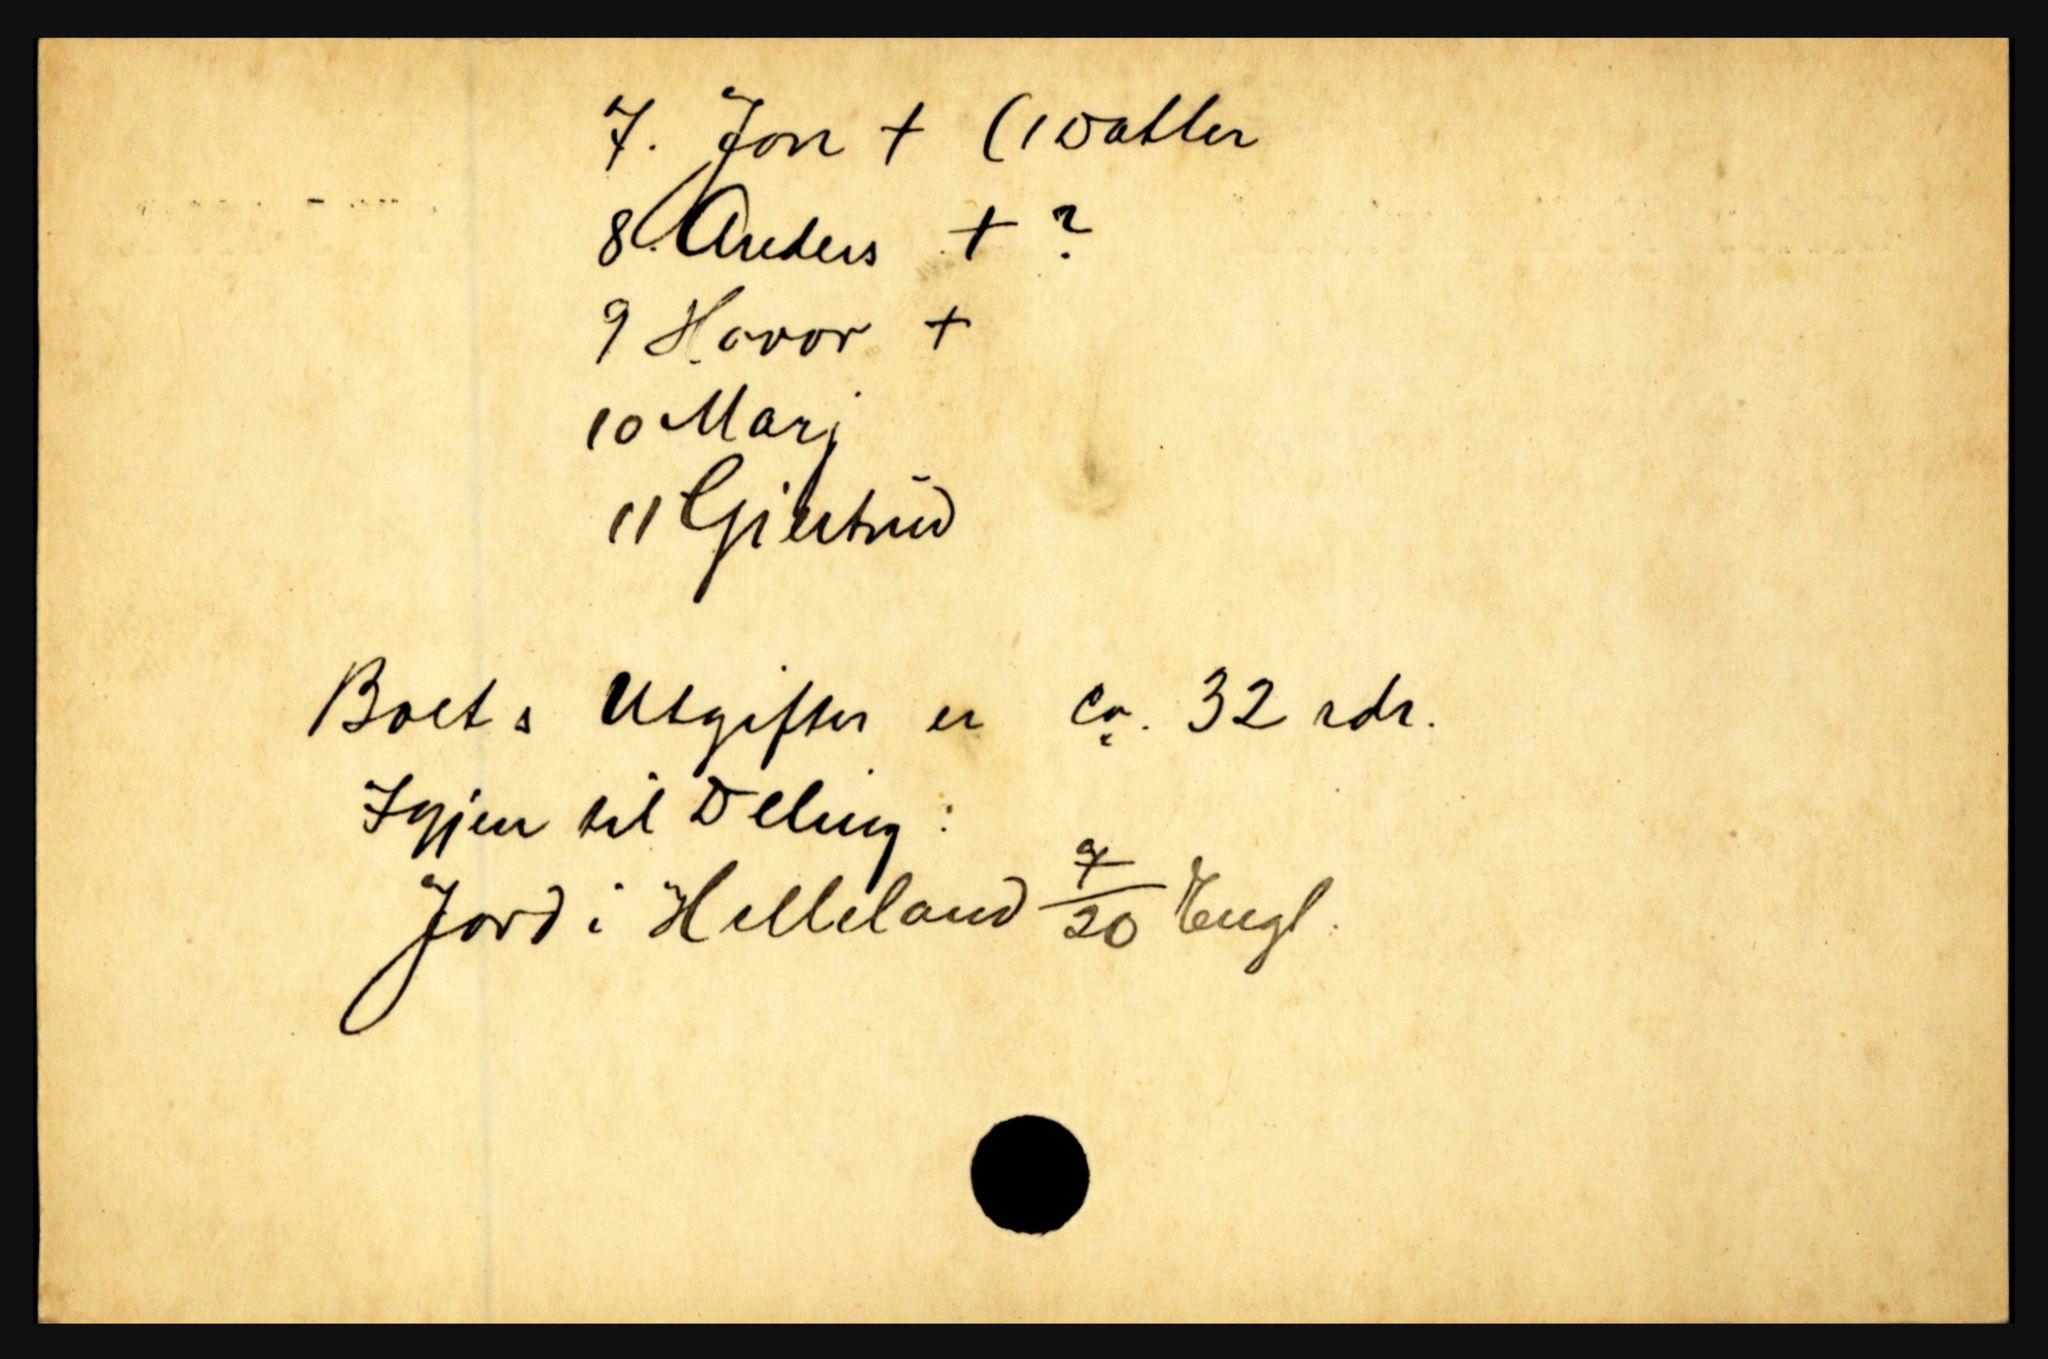 7. Jon + (1 Datter
8. Anders + ?
9 Havor +
10 Marj
11 Gjertrud
Boets Utgifter er ca. 32 rdr.
Igjen til Deling:
Jord i Helleland 7/20 Engl.